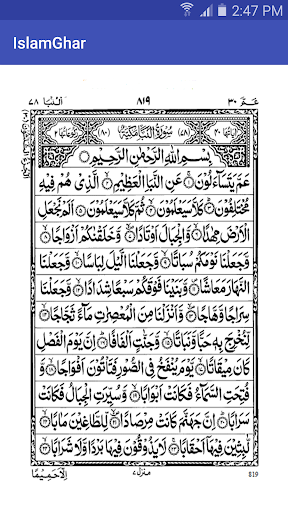 2:47 PM
IslamGhar
عمّ ٣٠
٨١٩
النبا ٧٨
سُورَةُ النَّبَاِ مَكِّيَّةٌ
بِسْمِ اللّٰهِ الرَّحْمٰنِ الرَّحِيْمِ
عَمَّ يَتَسَآءَلُوْنَ ۝١ عَنِ النَّبَاِ الْعَظِيْمِ ۝٢ الَّذِيْ هُمْ فِيْهِ
مُخْتَلِفُوْنَ ۝٣ كَلَّا سَيَعْلَمُوْنَ ۝٤ ثُمَّ كَلَّا سَيَعْلَمُوْنَ ۝٥ اَلَمْ نَجْعَلِ
الْاَرْضَ مِهٰدًا ۝٦ وَّالْجِبَالَ اَوْتَادًا ۝٧ وَّخَلَقْنٰكُمْ اَزْوَاجًا ۝٨
وَّجَعَلْنَا نَوْمَكُمْ سُبَاتًا ۝٩ وَّجَعَلْنَا الَّيْلَ لِبَاسًا ۝١٠ وَّجَعَلْنَا
النَّهَارَ مَعَاشًا ۝١١ وَّبَنَيْنَا فَوْقَكُمْ سَبْعًا شِدَادًا ۝١٢ وَّجَعَلْنَا
سِرَاجًا وَّهَّاجًا ۝١٣ وَّاَنْزَلْنَا مِنَ الْمُعْصِرٰتِ مَآءً ثَجَّاجًا ۝١٤
لِّنُخْرِجَ بِهٖ حَبًّا وَّنَبَاتًا ۝١٥ وَّجَنّٰتٍ اَلْفَافًا ۝١٦ اِنَّ يَوْمَ الْفَصْلِ
كَانَ مِيْقَاتًا ۝١٧ يَّوْمَ يُنْفَخُ فِي الصُّوْرِ فَتَاْتُوْنَ اَفْوَاجًا ۝١٨ وَّ
فُتِحَتِ السَّمَآءُ فَكَانَتْ اَبْوَابًا ۝١٩ وَّسُيِّرَتِ الْجِبَالُ فَكَانَتْ
سَرَابًا ۝٢٠ اِنَّ جَهَنَّمَ كَانَتْ مِرْصَادًا ۝٢١ لِّلطَّاغِيْنَ مَاٰبًا ۝٢٢
لّٰبِثِيْنَ فِيْهَآ اَحْقَابًا ۝٢٣ لَا يَذُوْقُوْنَ فِيْهَا بَرْدًا وَّلَا شَرَابًا ۝٢٤
منزل ٧
اِلَّا حَمِيْمًا
819